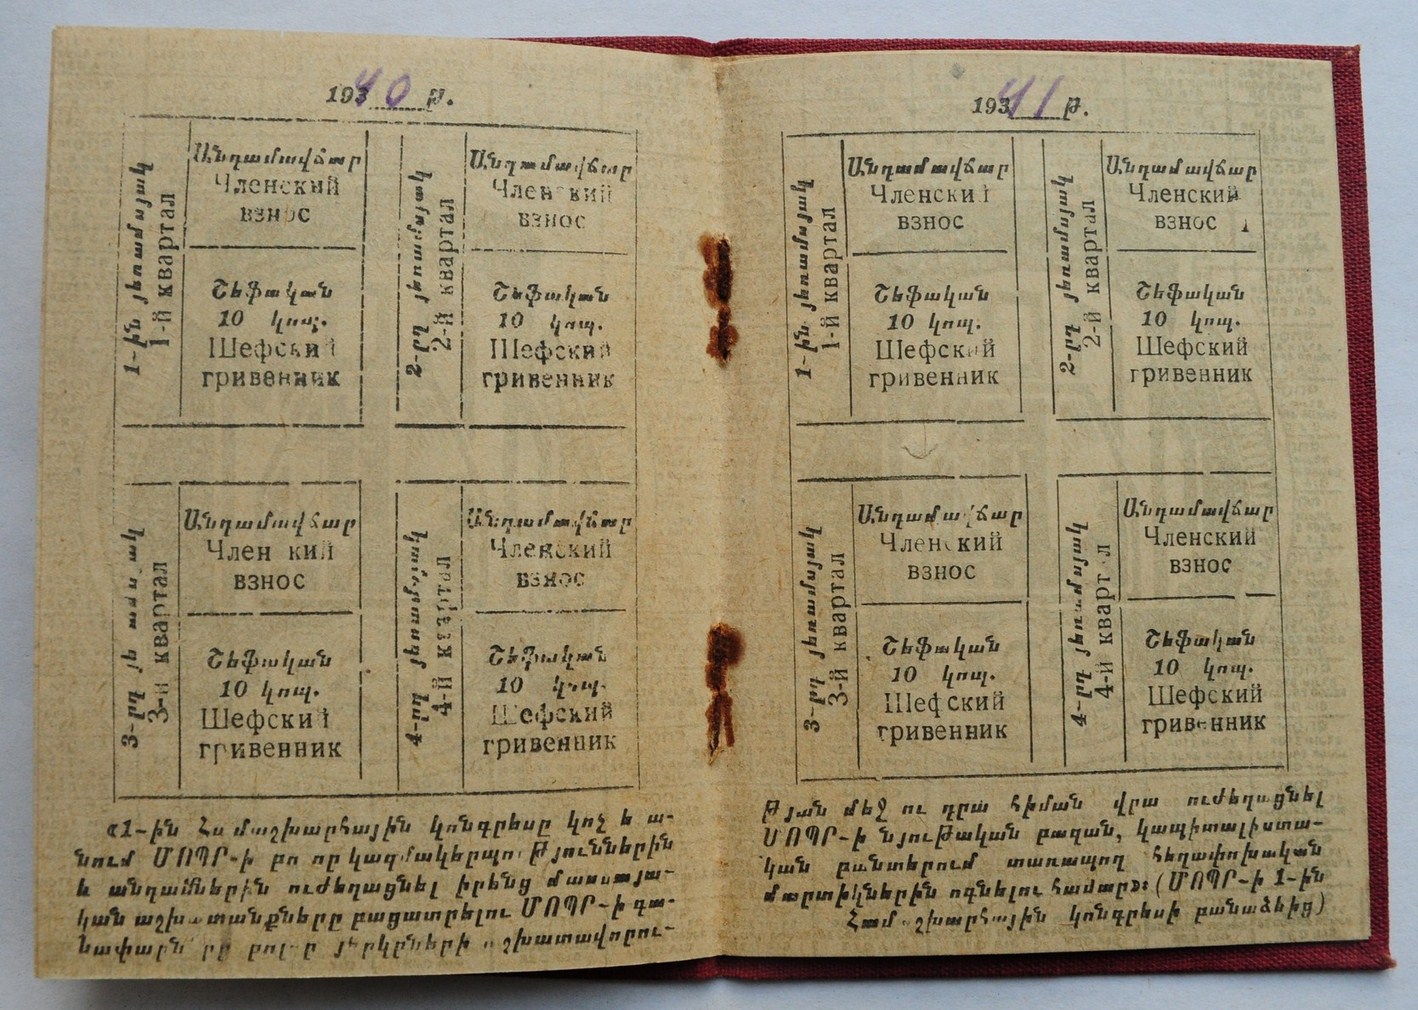 193 40 թ.
1-ին յեռամսյակ
1-й квартал
Անդամավճար
Членский
взнос
Շեֆական
10 կոպ.
Шефский
гривенник
2-րդ յեռամսյակ
2-й квартал
Անդամավճար
Членский
взнос
Շեֆական
10 կոպ.
Шефский
гривенник
3-րդ յեռամսյակ
3-й квартал
Անդամավճար
Членский
взнос
Շեֆական
10 կոպ.
Шефский
гривенник
4-րդ յեռամսյակ
4-й квартал
Անդամավճար
Членский
взнос
Շեֆական
10 կոպ.
Шефский
гривенник
«1-ին Համաշխարհային կոնգրեսը կոչ ե ա-
նում ՄՈՊՐ-ի բոլոր կազմակերպություններին
և անդամներին ուժեղացնել իրենց մասսայա-
կան աշխատանքները բացատրելու ՄՈՊՐ-ի գա-
ղափարները բոլոր յերկրների աշխատավորու-
193 41 թ.
1-ին յեռամսյակ
1-й квартал
Անդամավճար
Членский
взнос
Շեֆական
10 կոպ.
Шефский
гривенник
2-րդ յեռամսյակ
2-й квартал
Անդամավճար
Членский
взнос
Շեֆական
10 կոպ.
Шефский
гривенник
3-րդ յեռամսյակ
3-й квартал
Անդամավճար
Членский
взнос
Շեֆական
10 կոպ.
Шефский
гривенник
4-րդ յեռամսյակ
4-й квартал
Անդամավճար
Членский
взнос
Շեֆական
10 կոպ.
Шефский
гривенник
թյան մեջ ու դրա հիման վրա ուժեղացնել
ՄՈՊՐ-ի նյութական բազան, կապիտալիստա-
կան բանտերում տառապող հեղափոխական
մարտիկներին ոգնելու համար»: (ՄՈՊՐ-ի 1-ին
Համաշխարհային կոնգրեսի բանաձեվից)